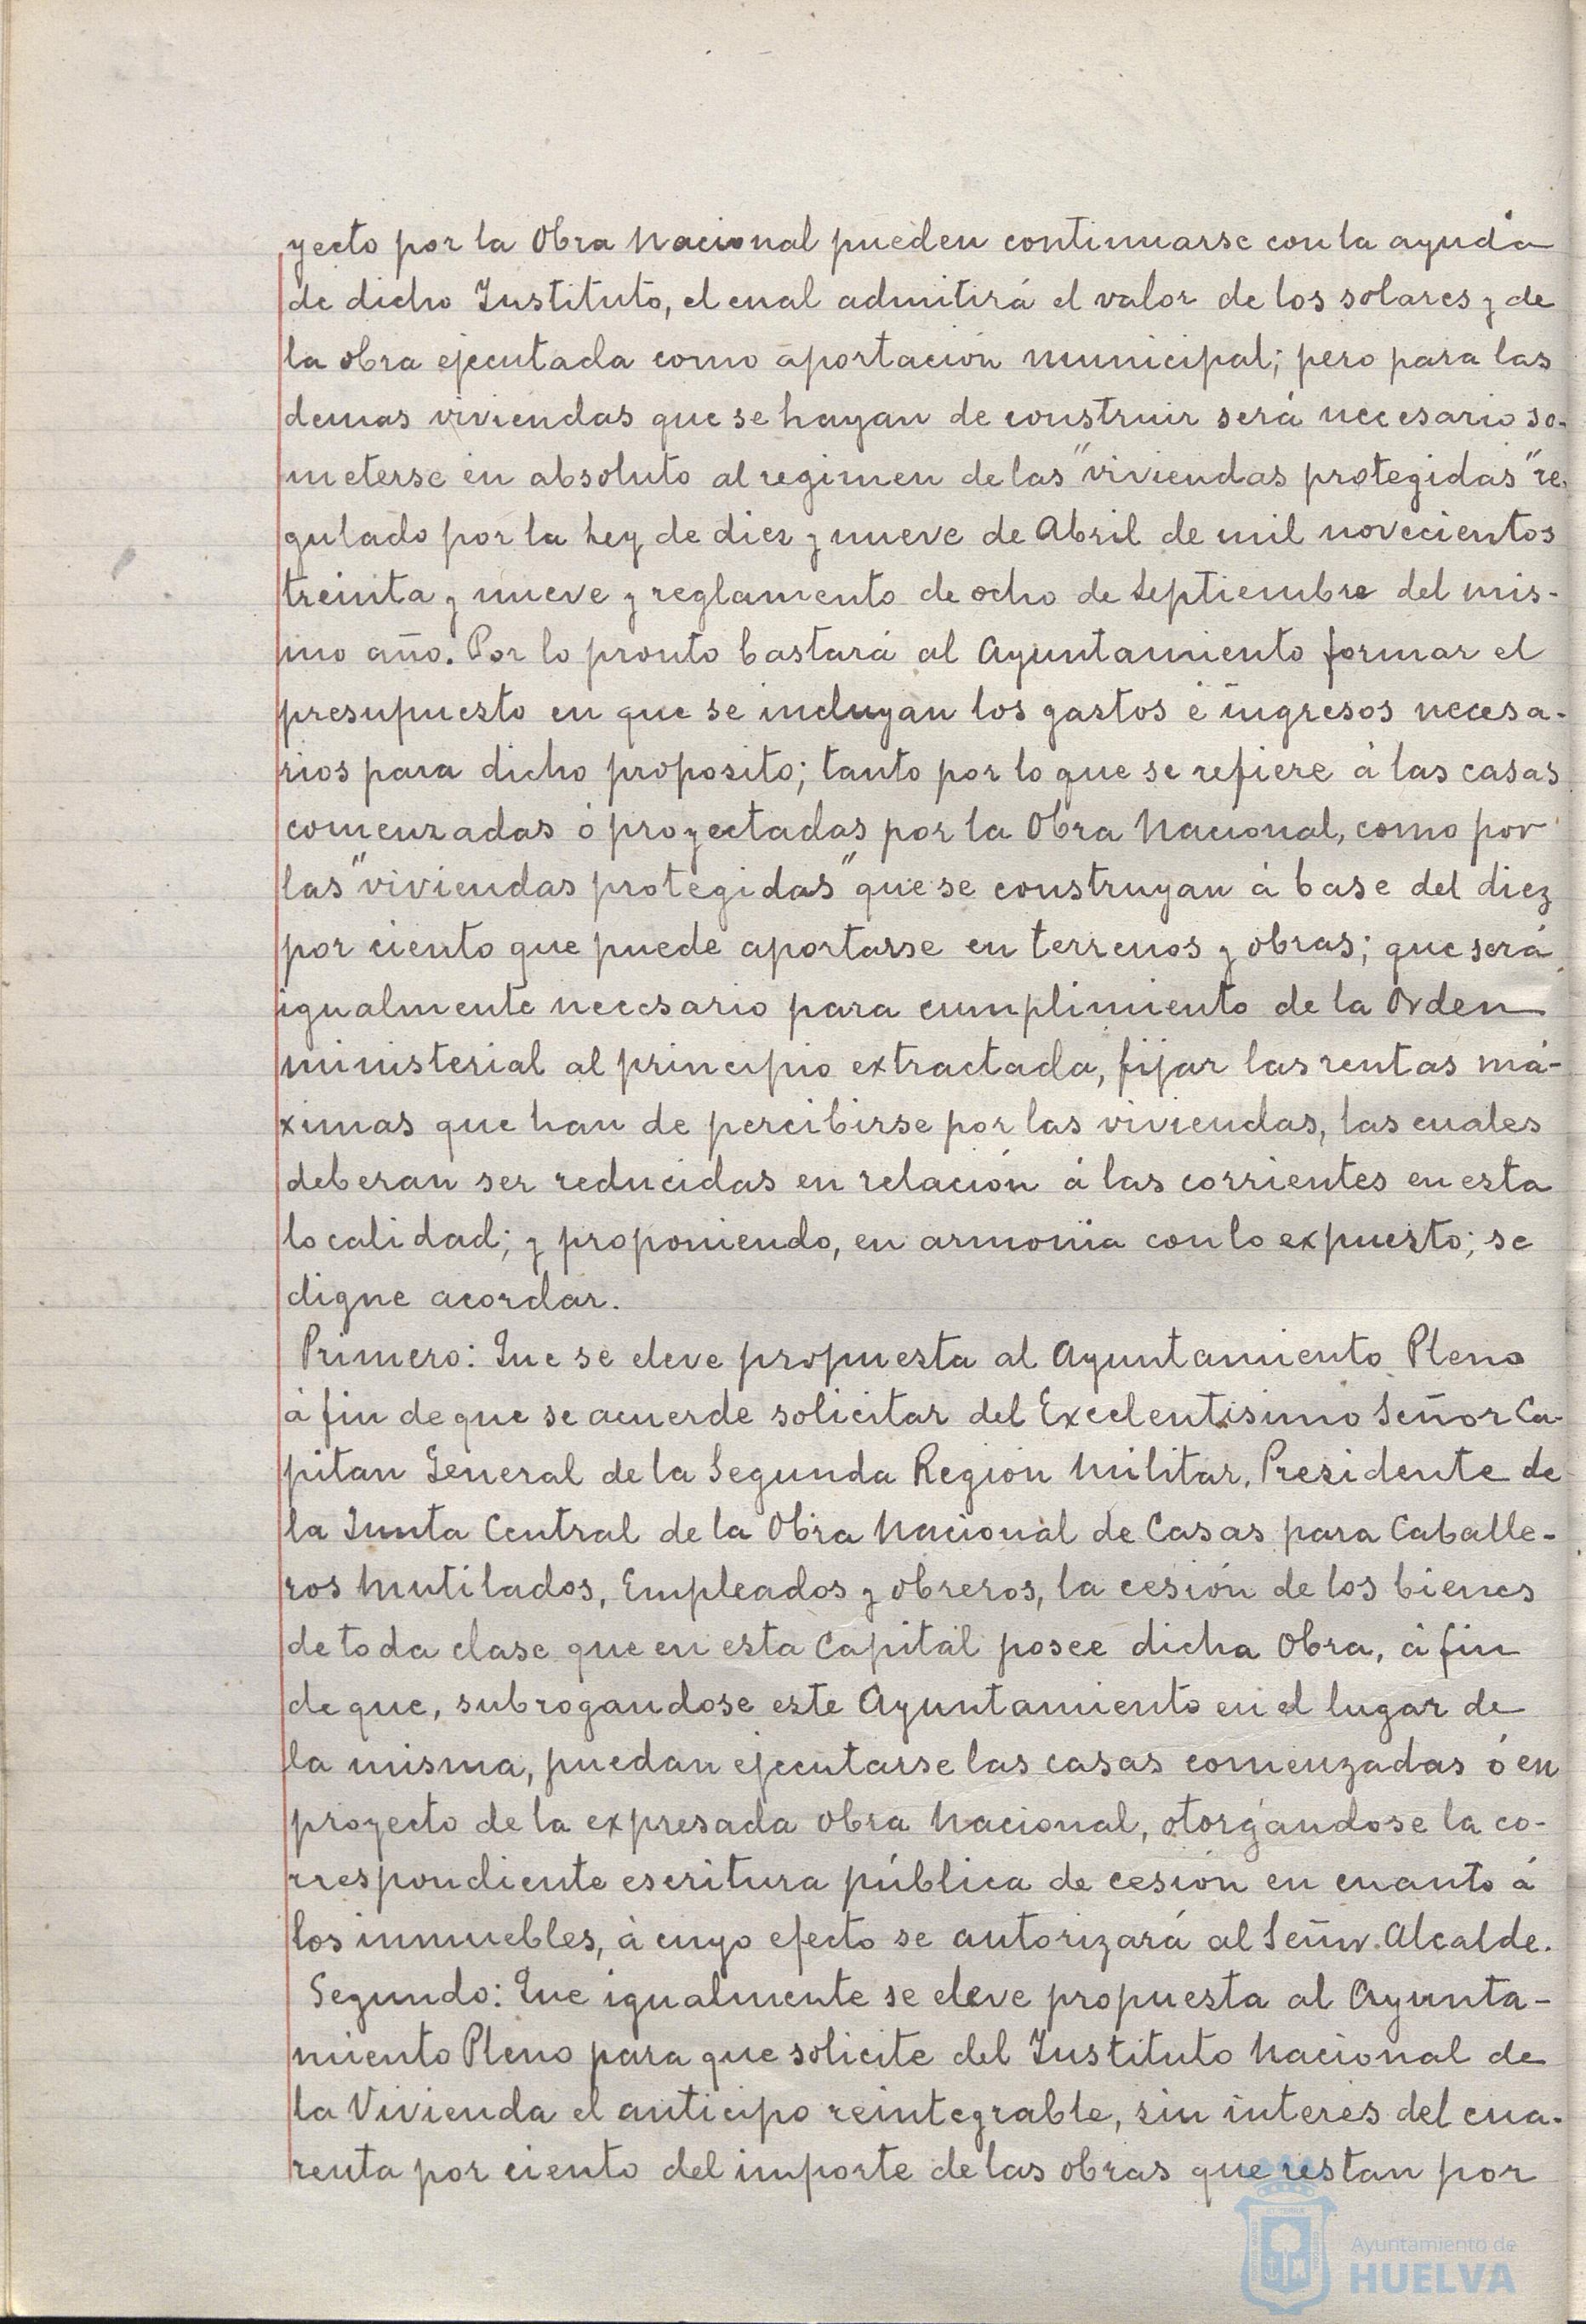 yecto por la Obra Nacional pueden continuarse con la ayuda
de dicho Instituto, el cual admitirá el valor de los solares y de
la obra ejecutada como aportación municipal; pero para las
demas viviendas que se hayan de construir será necesario so-
meterse en absoluto al regimen de las "viviendas protegidas" re-
gulado por la Ley de diez y nueve de Abril de mil novecientos
treinta y nueve y reglamento de ocho de Septiembre del mis-
mo año. Por lo pronto bastará al Ayuntamiento formar el
presupuesto en que se incluyan los gastos é ingresos necesa-
rios para dicho proposito; tanto por lo que se refiere á las casas
comenzadas ó proyectadas por la Obra Nacional, como por
las "viviendas protegidas" que se construyan á base del diez
por ciento que puede aportarse en terrenos y obras; que será
igualmente necesario para cumplimiento de la Orden
ministerial al principio extractada, fijar las rentas má-
ximas que han de percibirse por las viviendas, las cuales
deberan ser reducidas en relación á las corrientes en esta
localidad; y proponiendo, en armonía con lo expuesto; se
digne acordar.
Primero: Que se eleve propuesta al Ayuntamiento Pleno
á fin de que se acuerde solicitar del Excelentisimo Señor Ca-
pitan General de la Segunda Región Militar, Presidente de
la Junta Central de la Obra Nacional de Casas para Caballe-
ros Mutilados, Empleados y obreros, la cesión de los bienes
de toda clase que en esta Capital posee dicha Obra, á fin
de que, subrogandose este Ayuntamiento en el lugar de
la misma, puedan ejecutarse las casas comenzadas ó en
proyecto de la expresada Obra Nacional, otorgándose la co-
rrespondiente escritura pública de cesión en cuanto á
los inmuebles, á cuyo efecto se autorizará al Señor Alcalde.
Segundo: Que igualmente se eleve propuesta al Ayunta-
miento Pleno para que solicite del Instituto Nacional de
la Vivienda el anticipo reintegrable, sin interés del cua-
renta por ciento del importe de las obras que restan por
Ayuntamiento de
HUELVA